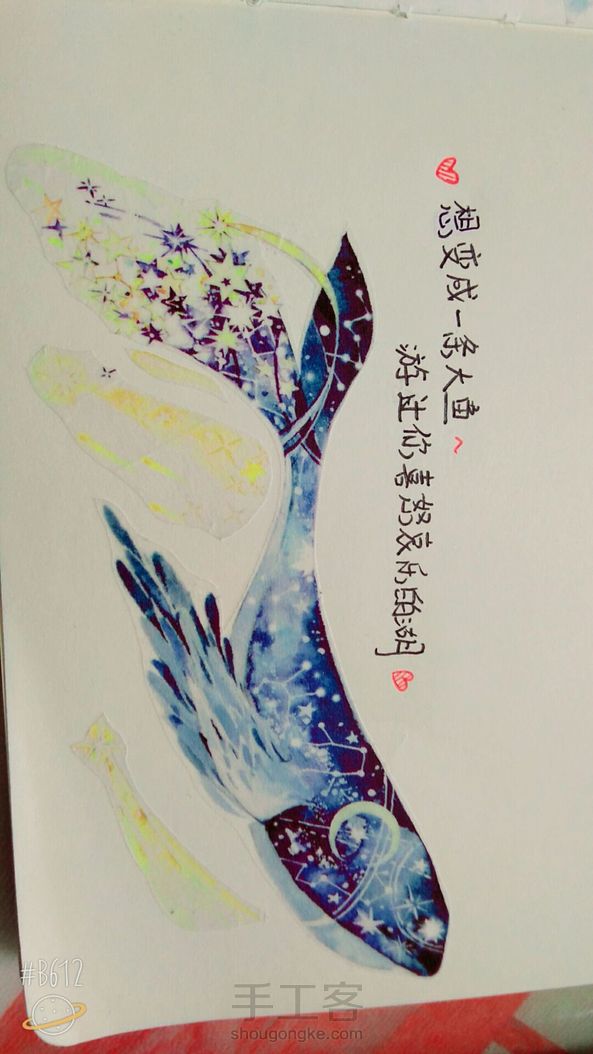 想变成一条大鱼
游过你喜怒哀乐的湖
#B612
手工客
shougongke.com